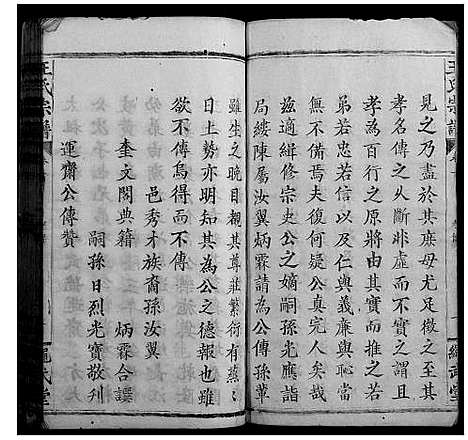 王氏宗譜
見之乃盡於其庶母尤足徵之至
孝名傳之不斷非虛而不實之謂且
孝為百行之原將由其實而推之若
弟若忠若信以及仁與義廉與恥當
無不備焉夫復何疑公真完人矣哉
茲適緝修宗史公之嫡嗣孫光應詣
局縷陳屬汝翼炳霖請為公傳孫輩
雖生之晚目覩其尊莊繁衍有蒸蒸
日上勢亦明知其為公之德報也雖
欲不傳焉得而不傳
邑秀才族裔孫汝翼
奎文閣典籍 炳霖合譔
嗣孫日烈光寶敬刋
運齋公傳贊
王氏宗譜
繩武堂